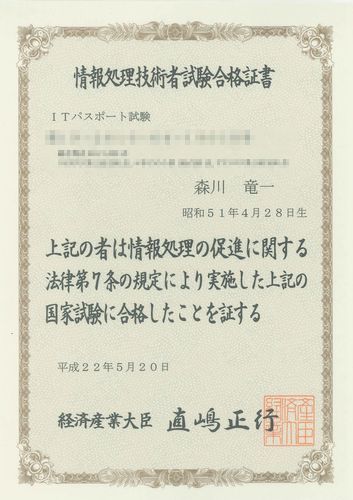 情報処理技術者試験合格証書
ITパスポート試験
森川 竜一
昭和51年4月28日生
上記の者は情報処理の促進に関する
法律第7条の規定により実施した上記の
国家試験に合格したことを証する
平成22年5月20日
経済産業大臣 直嶋正行